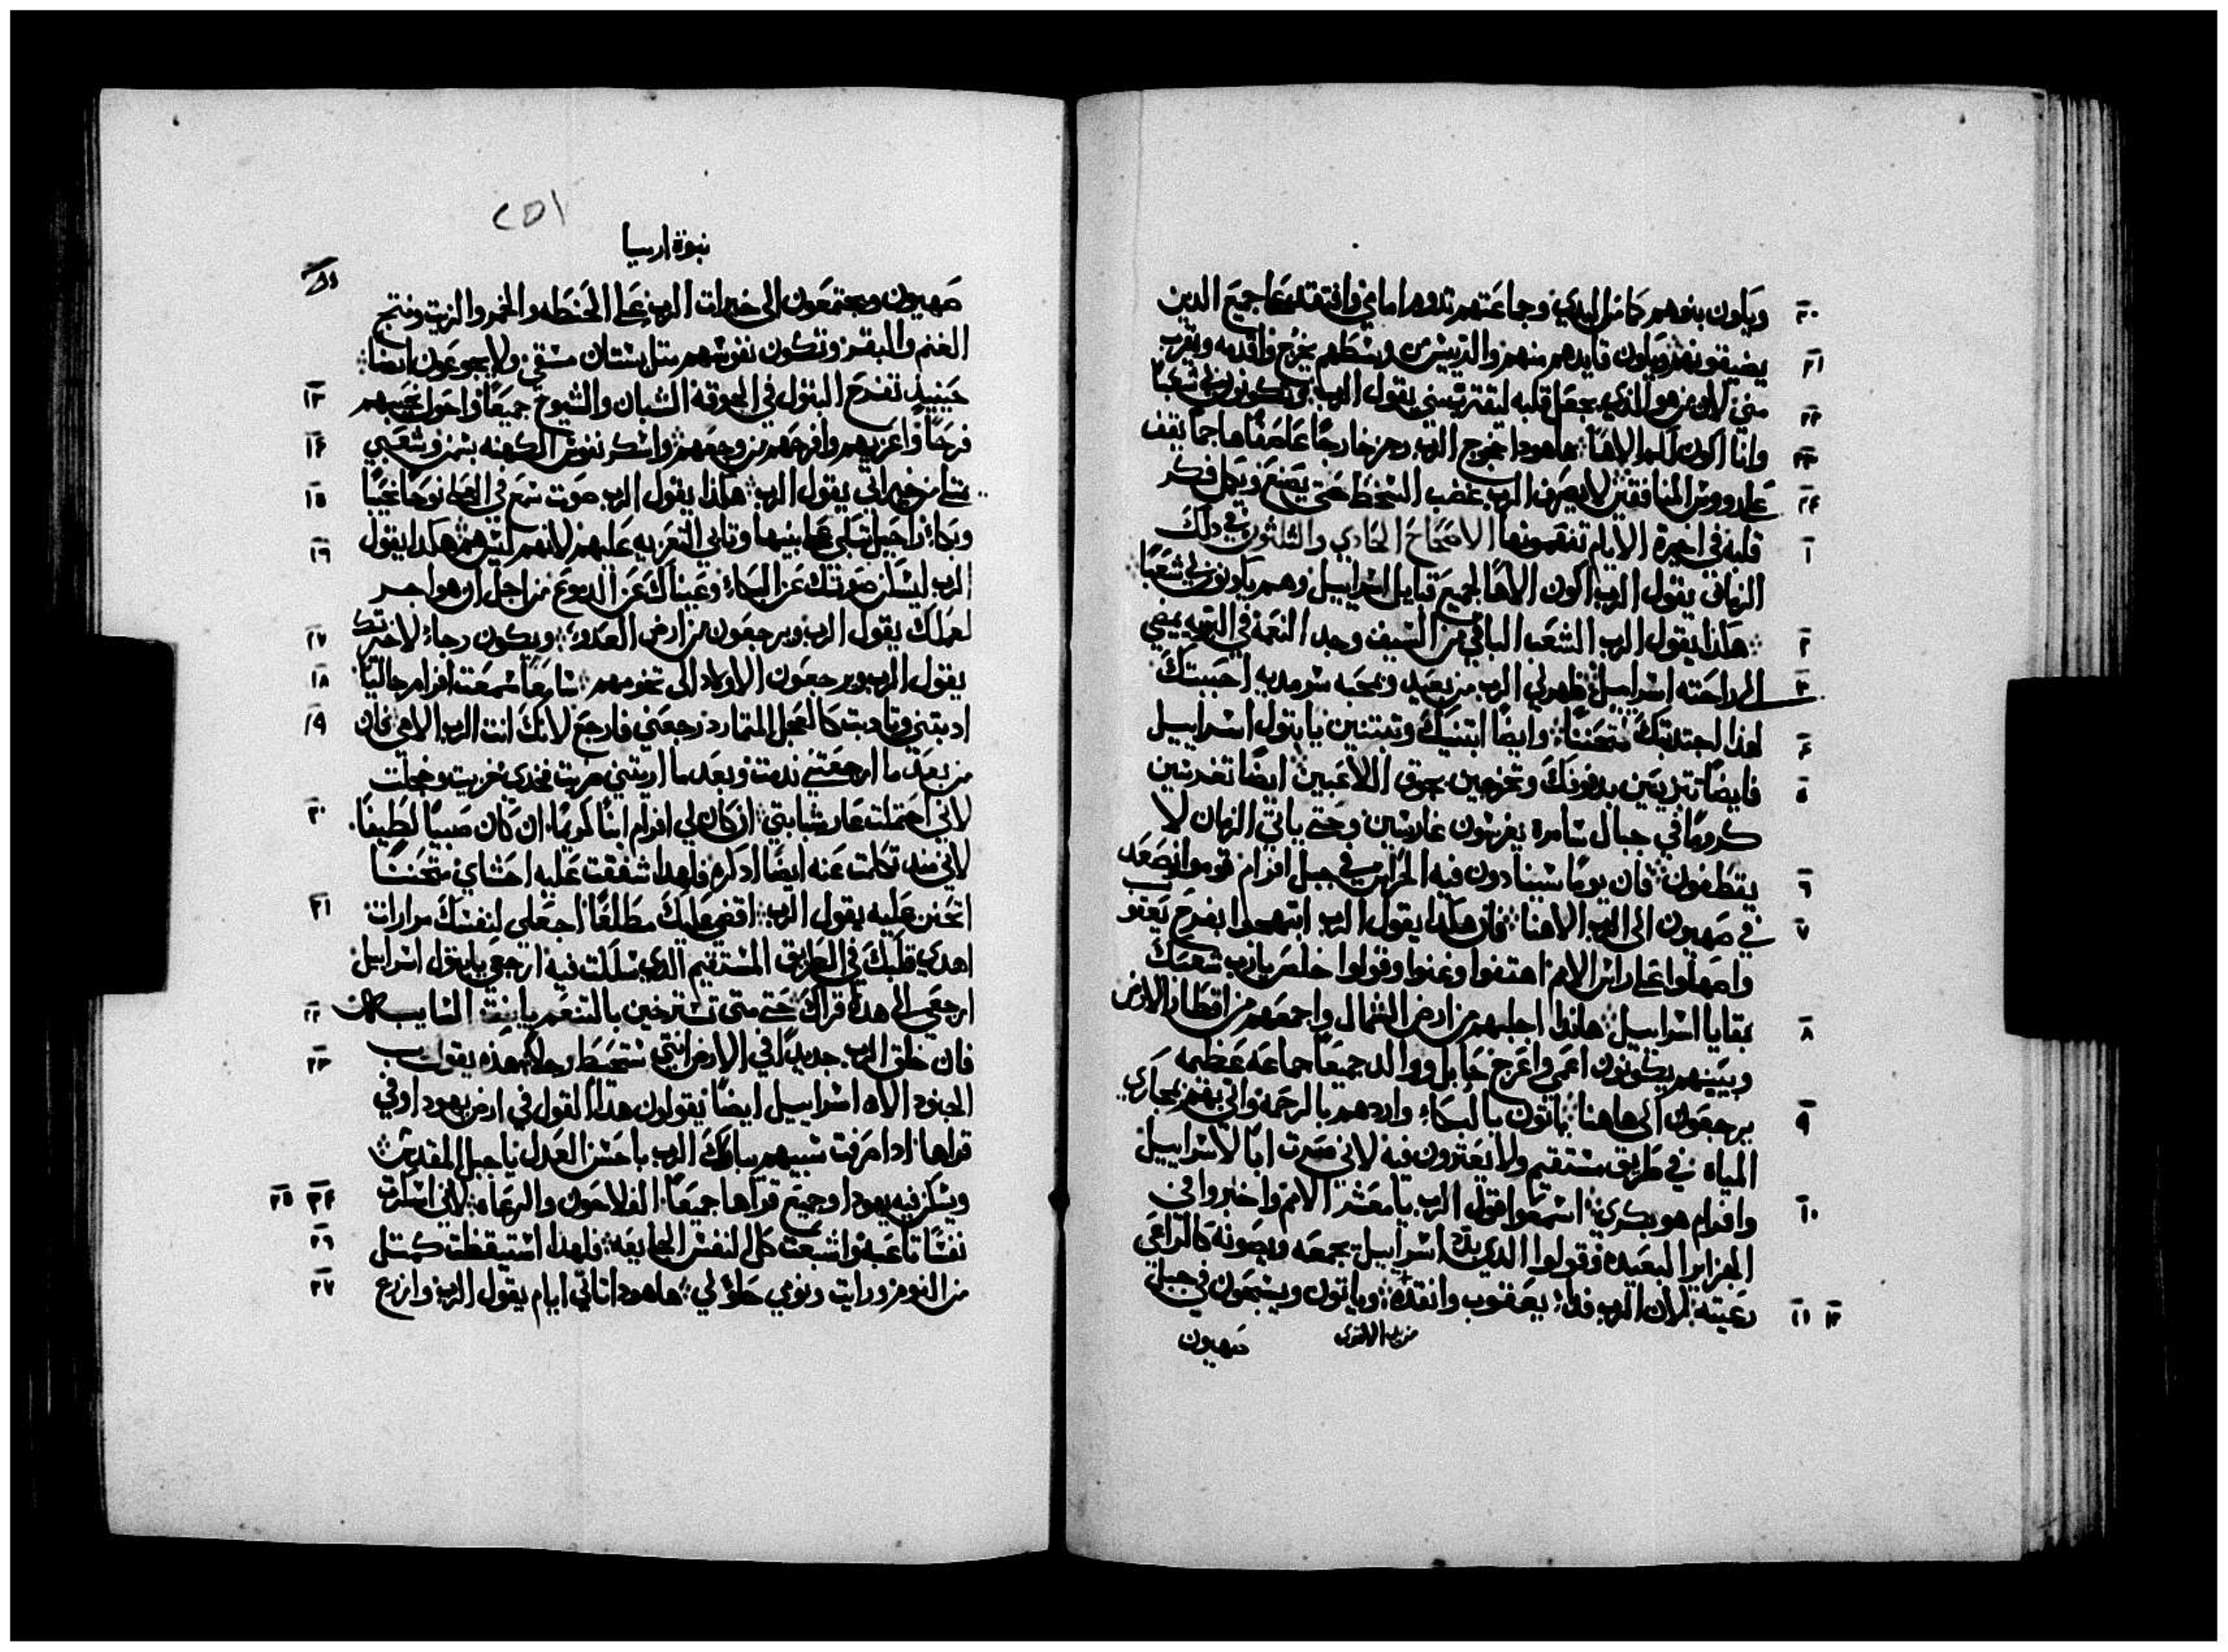 ٢٠ ويكون بنوهم كما من البدي وجماعتهم تدوم امامي وافتقد على جميع الدين
٢١ يضيقونهم ويكون قايدهم منهم والرييس من وسطهم يخرج واقدمه ويقرب
٢٢ مني لان من هو الذي يجعل قلبه ليقترب مني يقول الرب وتكونون لي شعبًا
٢٣ وانا اكون لكم الاهًا هاهودا يخرج الرب رجز خارجًا عاصفًا هاجمًا يقف
٢٤ على رووس المنافقين لا يصرف الرب غضب السخط حتى يصنع ويكمل فكر
١ قلبه في اخيرة الايام تفهمونها الاصحاح الحادي والثلثون في ذلك
الزمان يقول الرب اكون الاهًا لجميع قبايل اسراييل وهم يكونون لي شعبًا
٢ هكذا يقول الرب الشعب الباقي من السيف وجد النعمة في التيه يمضي
٣ الى راحته اسراييل ظهر لي الرب من بعيد ومحبه سرمديه احببتك
٤ لهذا اجتدبتك متحننًا وايضًا ابنيك وتبتنين يا بتول اسراييل
٥ فايضًا تتزينين بدفوفك وتخرجين بجوق اللاعبين ايضًا تغرسين
كرومًا في جبال سامرة يغرسون غارسين وحتى ياتي الزمان لا
٦ يقطفون فان يومًا سينادون فيه الحراس في جبل افرام قوموا نصعد
٧ في صهيون الى الرب الاهنا فان هكذا يقول الرب ابتهجوا بفرح يعقوب
واصهلوا على راس الامم اهتفوا وغنوا وقولوا خلص يارب شعبك
٨ بقايا اسراييل هاندا اجلبهم من ارض الشمال واجمعهم من اقطار الارض
وبينهم يكونون اعمى واعرج حابل ووالد جميعًا جماعه عظيمه
٩ يرجعون الى هاهنا ياتون بالبكاء واردهم بالرحمة واتي بهم بمجاري
المياه في طريق مستقيم ولا يعثرون فيه لاني صرت ابًا لاسراييل
١٠ وافرام هو بكري اسمعوا قول الرب يا معشر الامم واخبروا في
الجزاير البعيده وقولوا الذي بدد اسراييل يجمعه ويصونه كالراعي
١١ ١٢ رعيته لان الرب فدا يعقوب وانقذه وياتون ويسبحون في جبل
صهيون
٢٥١
نبوة ارميا
صهيون ويجتمعون الى خيرات الرب على الحنطه والخمر والزيت ونتج
الغنم والبقر وتكون نفوسهم مثل بستان مسقي ولا يجوعون ايضًا
١٣ حينيد تفرح البتول في الجوقة الشبان والشيوخ جميعًا واحول نحيبهم
١٤ فرحًا واعزيهم وافرحهم من وجعهم واسكر نفوس الكهنه بسمن وشعبي
١٥ يمتلي من خيراتي يقول الرب هكذا يقول الرب صوت سمع في العلى نوحًا نحيبًا
١٦ وبكاء راحيل تبكي على بنيها وتابى التعزيه عليهم لانهم ليس هم هكذا يقول
الرب ليسكن صوتك عن البكاء وعيناك عن الدموع من اجل ان هو اجر
١٧ لعملك يقول الرب ويرجعون من ارض العدو ويكون رجاء لاخرتك
١٨ يقول الرب ويرجعون الاولاد الى تخومهم سامعًا سمعت افرام جاليًا
١٩ ادبتني وتادبت كالعجل المتمارد رجعني فارجع لانك انت الرب الاهي فان
من بعد ما ارجعتني ندمت وبعد ما اريتني ضربت فخدي خزيت وخجلت
٢٠ لاني احتملت عار شبابي ان كان لي افرام ابنًا كريمًا ان كان صبيًا لطيفًا
لاني منذ تكلمت عنه ايضًا ادكره فلهدا شفقت عليه احشاي متحننًا
٢١ اتحنن عليه يقول الرب اقضي عليك مطلعًا اجعلي لنفسك مرارات
اهدي قلبك في الطريق المستقيم الذي سلكت فيه ارجعي يا بتول اسراييل
٢٢ ارجعي الى هده قراك حتى متى تسترخين بالتنعم يا بنت السايبه
٢٣ فان خلق الرب جديدًا في الارض انثى ستحيط رجلًا هذه يقول رب
الجنود الاه اسراييل ايضًا يقولون هدا القول في ارض يهودا وفي
قراها ادا صرفت سبيهم يباركك الرب يا حسن العدل يا جبل المقدس
٢٤ ٢٥ ويسكن فيه يهودا وجميع قراها جميعًا الفلاحون والرعاه لاني اسكرت
٢٦ نفسًا تاعبه واشبعت كل نفس جايعه فلهدا استيقظت كمثل
٢٧ من النوم ورايت ونومي حلو لي هاهودا تاتي ايام يقول الرب وازرع